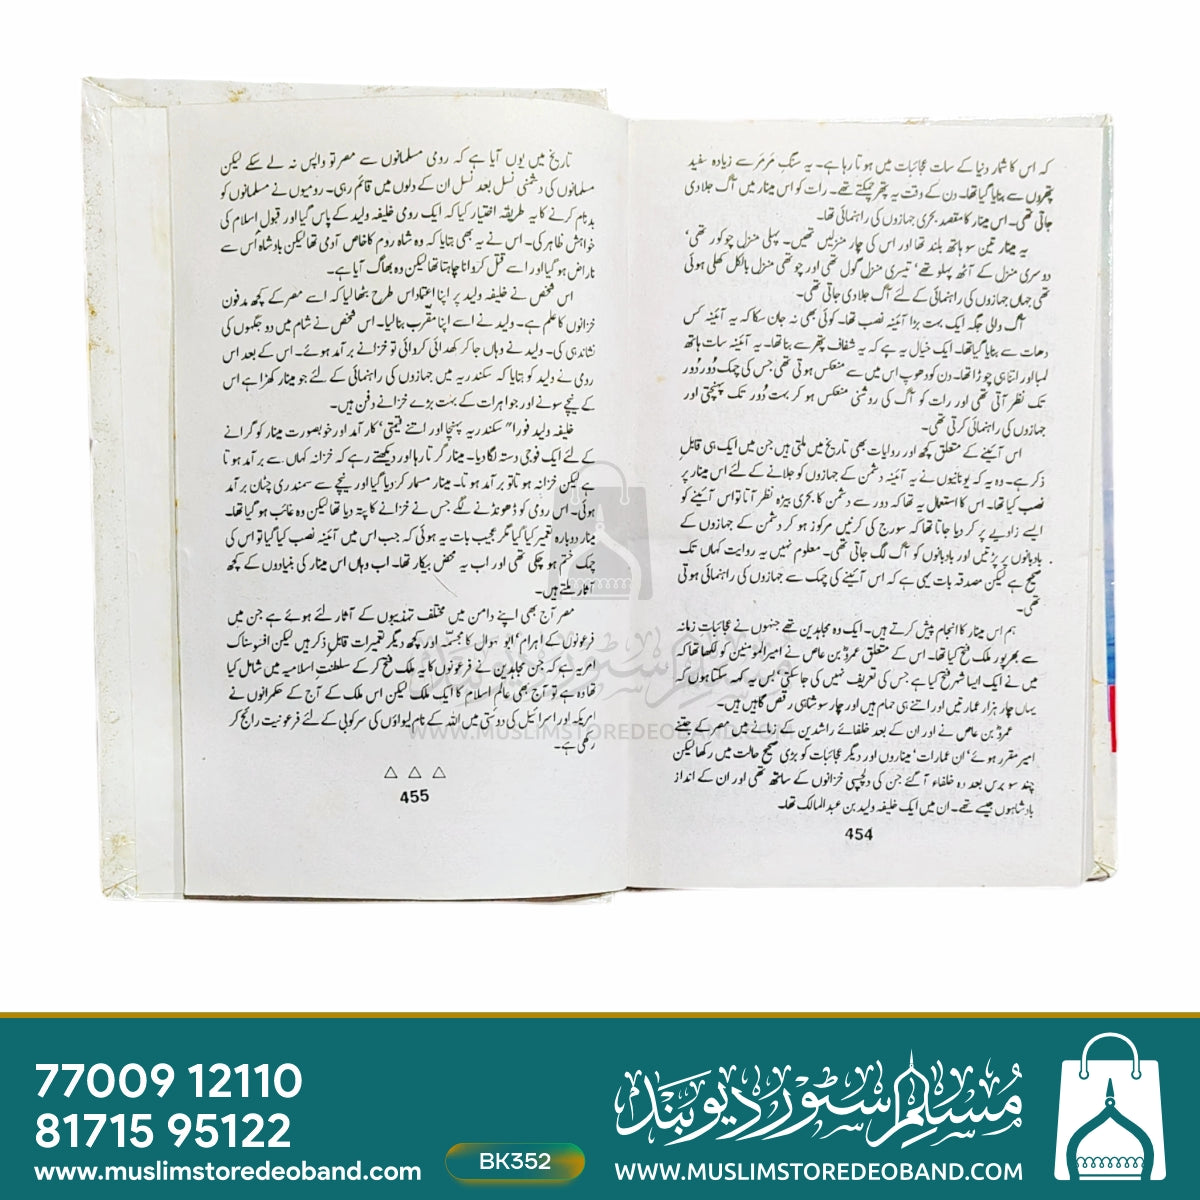 کہ اس کا شمار دنیا کے سات عجائبات میں ہوتا رہا ہے۔ یہ سنگِ مَرمَر سے زیادہ سفید
پتھروں سے بنایا گیا تھا۔ دن کے وقت یہ پتھر چمکتے تھے۔ رات کو اس مینار میں آگ جلا دی
جاتی تھی۔ اس مینار کا مقصد بحری جہازوں کی راہنمائی تھا۔
یہ مینار تین سو ہاتھ بلند تھا اور اس کی چار منزلیں تھیں۔ پہلی منزل چوکور تھی‘
دوسری منزل کے آٹھ پہلو تھے‘ تیسری منزل گول تھی اور چوتھی منزل بالکل کھلی ہوئی
تھی جہاں جہازوں کی راہنمائی کے لئے آگ جلا دی جاتی تھی۔
آگ والی جگہ ایک بہت بڑا آئینہ نصب تھا۔ کوئی بھی نہ جان سکا کہ یہ آئینہ کس
دھات سے بنایا گیا تھا۔ ایک خیال یہ ہے کہ یہ شفاف پتھر سے بنا تھا۔ یہ آئینہ سات ہاتھ
لمبا اور اتنا ہی چوڑا تھا۔ دن کو دھوپ اس میں سے منعکس ہوتی تھی جس کی چمک دُور دُور
تک نظر آتی تھی اور رات کو آگ کی روشنی منعکس ہو کر بہت دُور تک پہنچتی اور
جہازوں کی راہنمائی کرتی تھی۔
اس آئینے کے متعلق کچھ اور روایات بھی تاریخ میں ملتی ہیں جن میں ایک ہی قابلِ
ذکر ہے۔ وہ یہ کہ یونانیوں نے یہ آئینہ دشمن کے جہازوں کو جلانے کے لئے اس مینار پر
نصب کیا تھا۔ اس کا استعمال یہ تھا کہ دور سے دشمن کا بحری بیڑہ نظر آتا تو اس آئینے کو
ایسے زاویے پر کر دیا جاتا تھا کہ سورج کی کرنیں مرکوز ہو کر دشمن کے جہازوں کے
بادبانوں پر پڑتیں اور بادبانوں کو آگ لگ جاتی تھی۔ معلوم نہیں یہ روایت کہاں تک
صحیح ہے لیکن مصدقہ بات یہی ہے کہ اس آئینے کی چمک سے جہازوں کی راہنمائی ہوتی
تھی۔
ہم اس مینار کا انجام پیش کرتے ہیں۔ ایک وہ مجاہدین تھے جنہوں نے عجائبات زمانہ
سے بھرپور ملک فتح کیا تھا۔ اس کے متعلق عمروؓ بن عاص نے امیرالمؤمنین کو لکھا تھا کہ
میں نے ایک ایسا شہر فتح کیا ہے جس کی تعریف نہیں کی جا سکتی‘ بس یہ کہہ سکتا ہوں کہ
یہاں چار ہزار عمارتیں اور اتنے ہی حمام ہیں اور چار سو شاہی رقص گاہیں ہیں۔
عمروؓ بن عاص نے اور ان کے بعد خلفائے راشدین کے زمانے میں مصر کے جتنے
امیر مقرر ہوئے‘ ان عمارات‘ میناروں اور دیگر عجائبات کو بڑی صحیح حالت میں رکھا لیکن
چند سو برس بعد وہ خلفاء آ گئے جن کی دلچسپی خزانوں کے ساتھ تھی اور ان کے انداز
بادشاہوں جیسے تھے۔ ان میں ایک خلیفہ ولید بن عبدالمالک تھا۔
454
تاریخ میں یوں آیا ہے کہ رومی مسلمانوں سے مصر تو واپس نہ لے سکے لیکن
مسلمانوں کی دشمنی نسل بعد نسل ان کے دلوں میں قائم رہی۔ رومیوں نے مسلمانوں کو
بدنام کرنے کا یہ طریقہ اختیار کیا کہ ایک رومی خلیفہ ولید کے پاس گیا اور قبول اسلام کی
خواہش ظاہر کی۔ اس نے یہ بھی بتایا کہ وہ شاہ روم کا خاص آدمی تھا لیکن بادشاہ اُس سے
ناراض ہو گیا اور اسے قتل کروانا چاہتا تھا لیکن وہ بھاگ آیا ہے۔
اس شخص نے خلیفہ ولید پر اپنا اعتماد اس طرح بٹھا لیا کہ اسے مصر کے کچھ مدفون
خزانوں کا علم ہے۔ ولید نے اسے اپنا مقرّب بنا لیا۔ اس شخص نے شام میں دو جگہوں کی
نشاندہی کی۔ ولید نے وہاں جا کر کھدائی کروائی تو خزانے برآمد ہوئے۔ اس کے بعد اس
رومی نے ولید کو بتایا کہ سکندریہ میں جہازوں کی راہنمائی کے لئے جو مینار کھڑا ہے اس
کے نیچے سونے اور جواہرات کے بہت بڑے خزانے دفن ہیں۔
خلیفہ ولید فوراً سکندریہ پہنچا اور اتنے قیمتی‘ کارآمد اور خوبصورت مینار کو گرانے
کے لئے ایک فوجی دستہ لگا دیا۔ مینار گرتا رہا اور دیکھتے رہے کہ خزانہ کہاں سے برآمد ہوتا
ہے لیکن خزانہ ہوتا تو برآمد ہوتا۔ مینار مسمار کر دیا گیا اور نیچے سے سمندری چٹان برآمد
ہوئی۔ اس رومی کو ڈھونڈنے لگے جس نے خزانے کا پتہ دیا تھا لیکن وہ غائب ہو گیا تھا۔
مینار دوبارہ تعمیر کیا گیا مگر عجیب بات یہ ہوئی کہ جب اس میں آئینہ نصب کیا گیا تو اس کی
چمک ختم ہو چکی تھی اور اب یہ محض بیکار تھا۔ اب وہاں اس مینار کی بنیادوں کے کچھ
آثار ملتے ہیں۔
مصر آج بھی اپنے دامن میں مختلف تہذیبوں کے آثار لئے ہوئے ہے جن میں
فرعونوں کے اہرام‘ ابوالہول کا مجسمہ اور کچھ دیگر تعمیرات قابلِ ذکر ہیں لیکن افسوسناک
امر یہ ہے کہ جن مجاہدین نے فرعونوں کا یہ ملک فتح کر کے سلطنتِ اسلامیہ میں شامل کیا
تھا وہ ہے تو آج بھی عالمِ اسلام کا ایک ملک لیکن اس ملک کے آج کے حکمرانوں نے
امریکہ اور اسرائیل کی دوستی میں اللہ کے نام لیواؤں کی سرکوبی کے لئے فرعونیت رائج کر
رکھی ہے۔
△ △ △
455
مسلم سٹور دیوبند
WWW.MUSLIMSTOREDEOBAND.COM
77009 12110
81715 95122
www.muslimstoredeoband.com
BK352
مسلم سٹور دیوبند
WWW.MUSLIMSTOREDEOBAND.COM